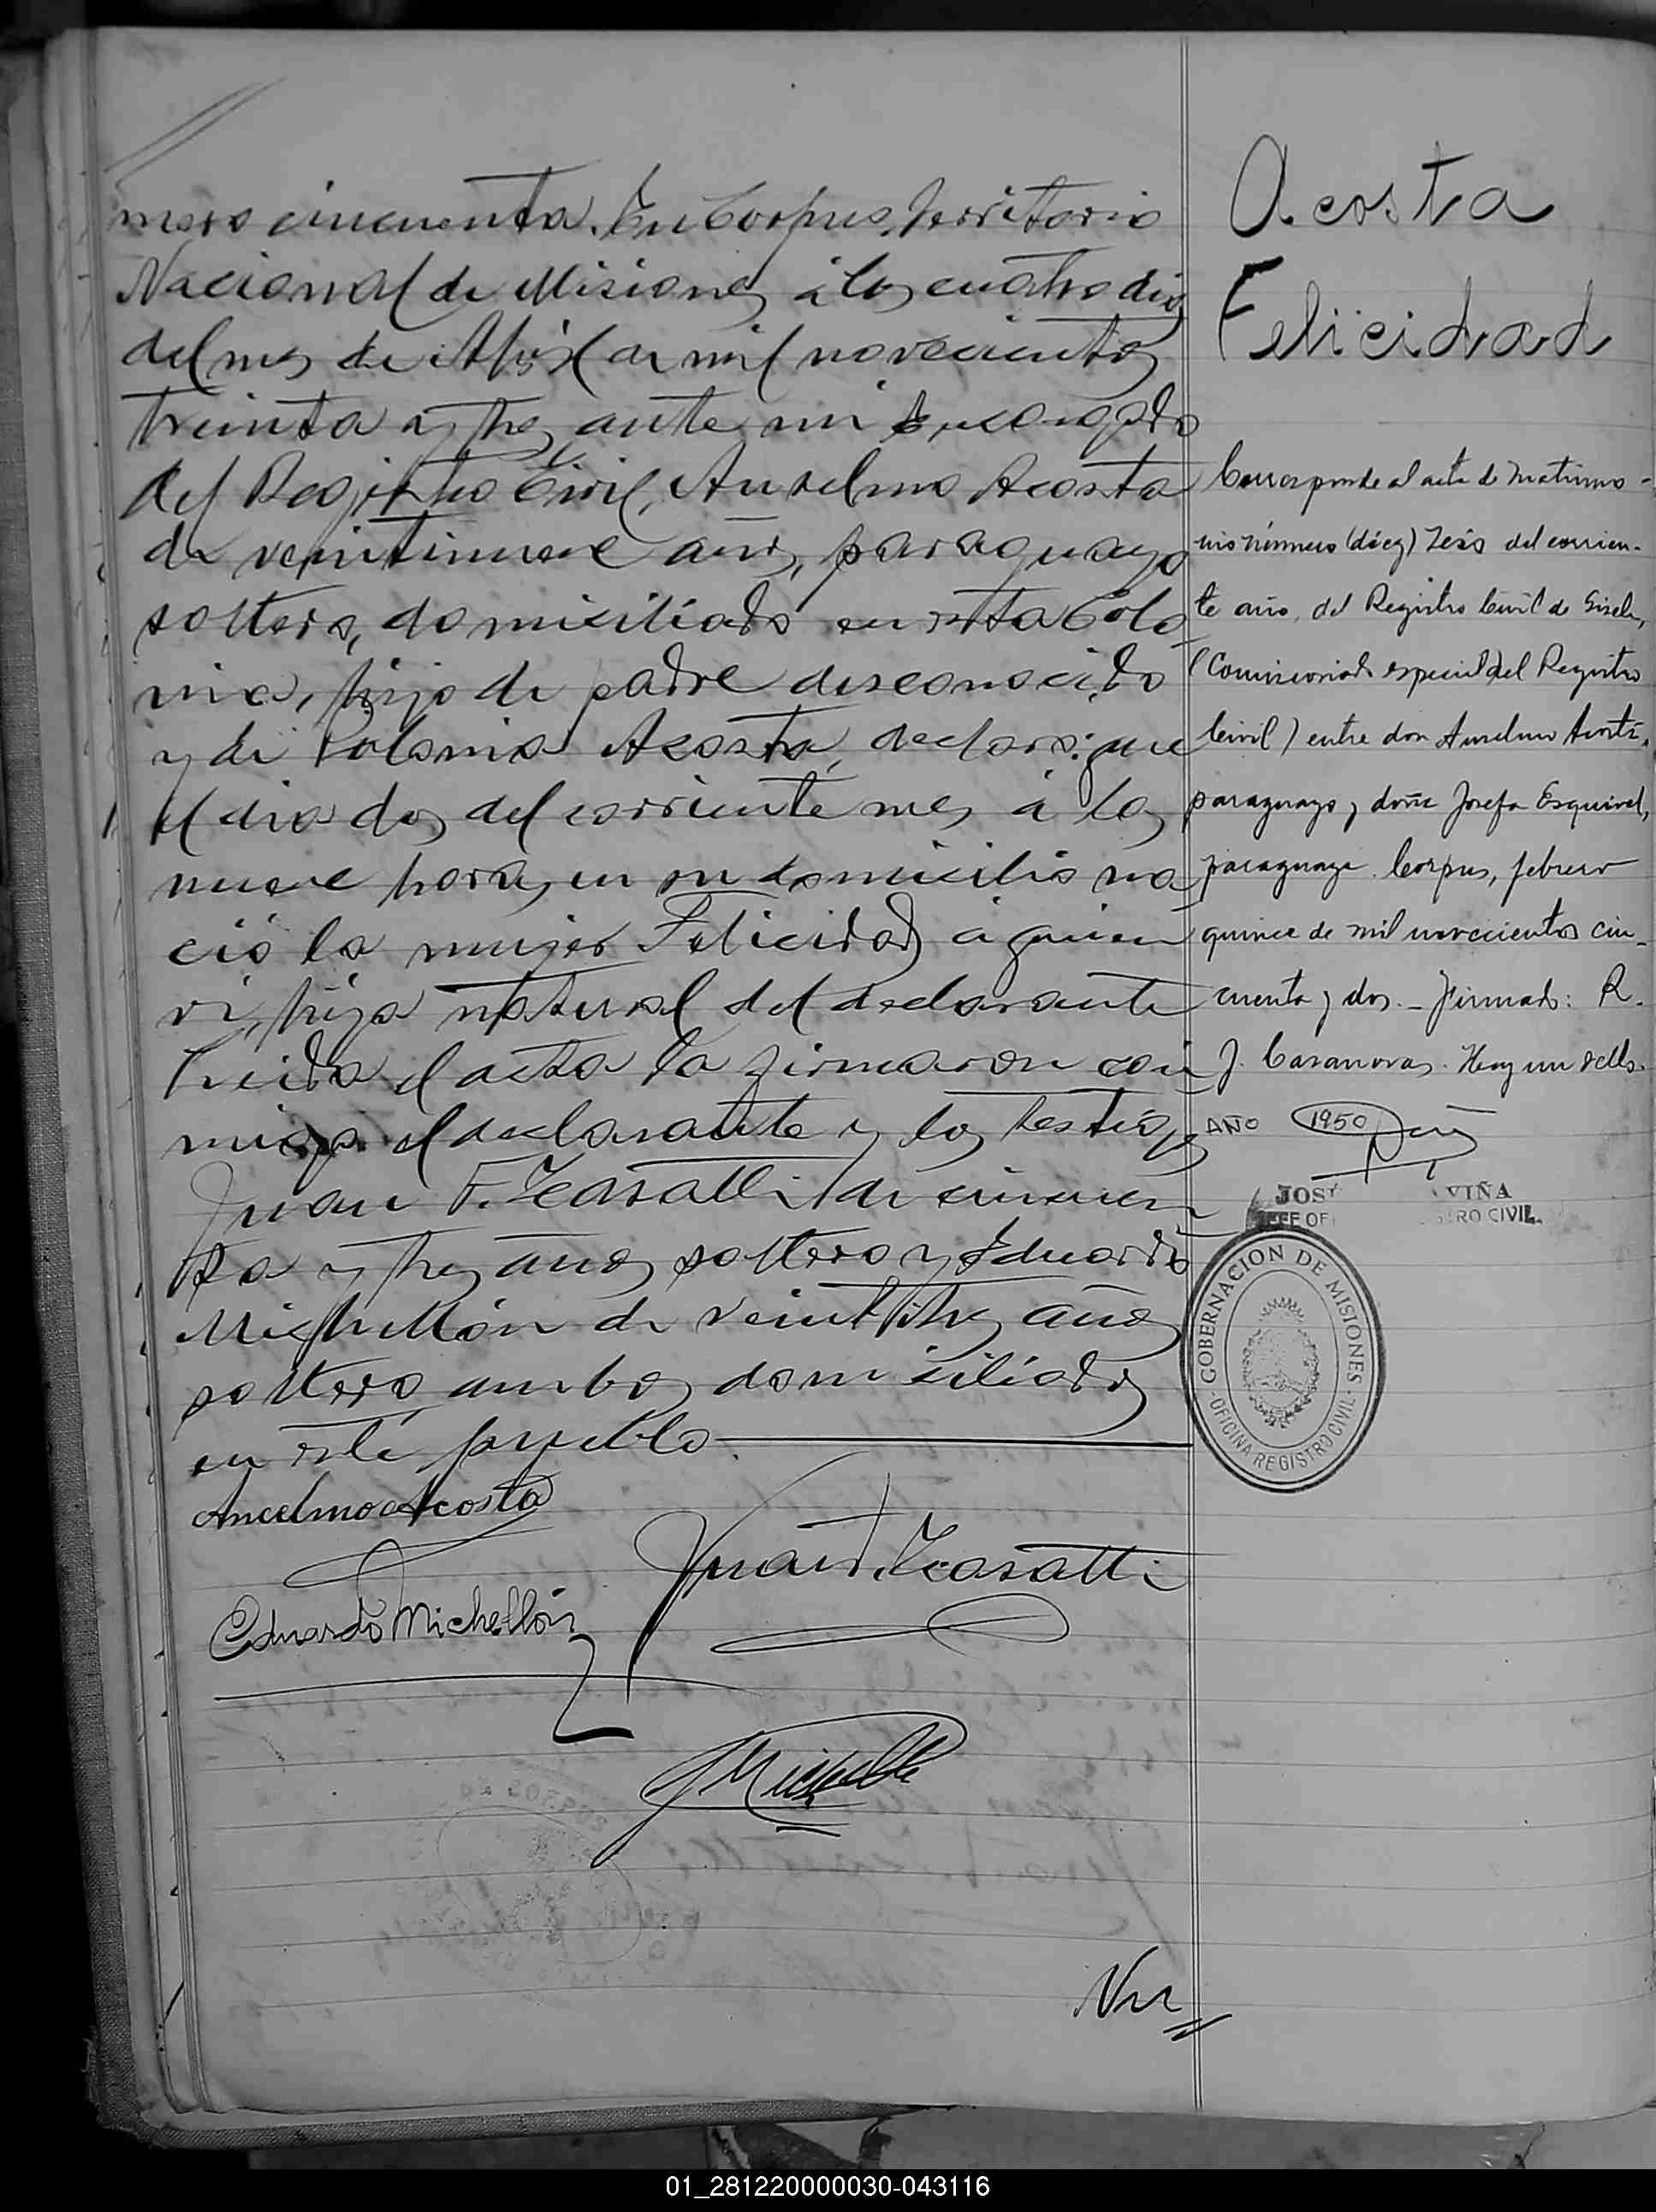 mero cincuenta. En Corpus, Territorio
Nacional de Misiones á los cuatro dias
del mes de Abril de mil novecientos
treinta y tres ante mi Encargado
del Registro Civil, Anselmo Acosta
de veintinueve años, paraguayo
soltero, domiciliado en esta Colo
nia, hijo de padre desconocido
y de Polonia Acosta, declaró: que
el dia dos del corriente mes á las
nueve horas, en su domicilio na
ció la mujer Felicidad á quien
vi, hija natural del declarante
Leida el acta la firmaron con
migo el declarante y los testigos
Juan F. Casatti de cincuen
ta y tres años soltero y Eduardo
Michellón de veintitres años
soltero ambos domiciliados
en este pueblo
Ancelmo Acosta
Juan F. Casatti
Eduardo Michellón
Nu
Acosta
Felicidad
Corresponde al acta de matrimo-
nio número (diez) seis del corrien-
te año, del Registro Civil de
(Comisionado especial del Registro
Civil) entre don Anselmo Acosta,
paraguayo y doña Josefa Esquivel,
paraguaya. Corpus, febrero
quince de mil novecientos cin-
cuenta y dos. - Firmado: R.
J. Casanovas. Hay un sello.
AÑO 1950
JOS VIÑA
JEFE OF RO CIVIL
GOBERNACION DE MISIONES
OFICINA REGISTRO CIVIL
01_281220000030-043116